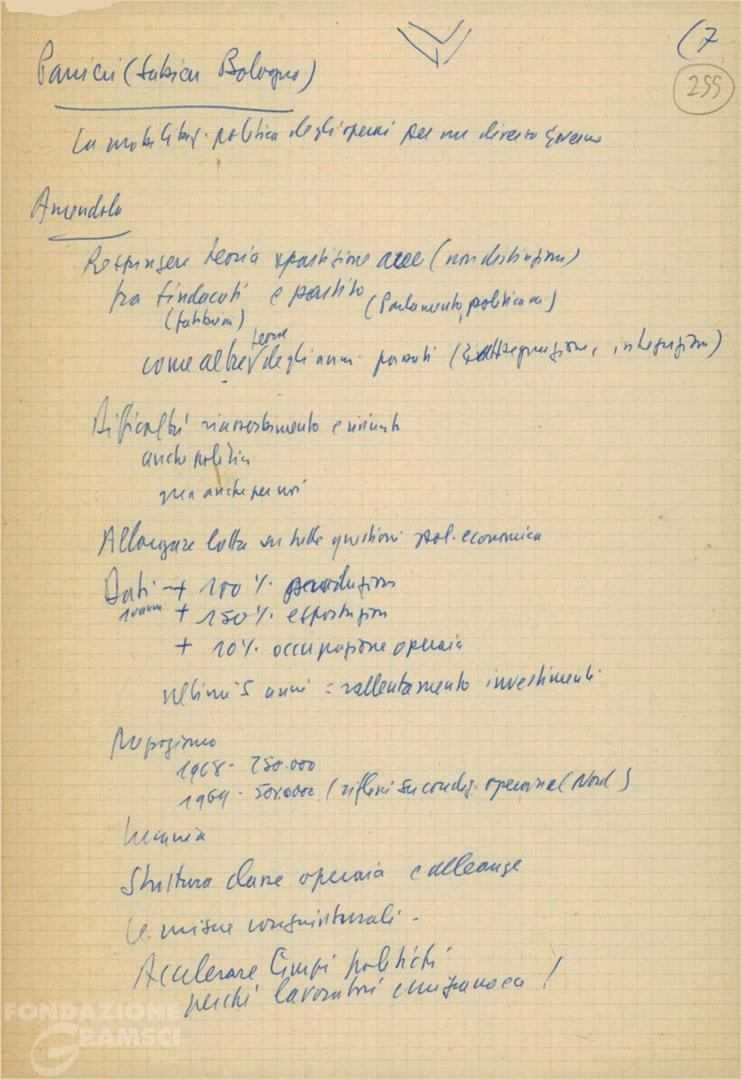 (7
255
Panieri (Sabiem Bologna)
La mobilitaz. politica degli operai per un diverso governo
Amendola
Respingere teoria spartizione aree (non distinzione)
tra sindacati e partito (Parlamento, politicam)
(fabbrica)
teorie
come altre degli anni passati (integrazione)
Difficoltà
anche politica
ma anche per noi
Allargare lotta su tutte questioni pol. economica
Dati → + 100% produzione
10 anni + 150% esportazion
+ 10% occupazione operaia
ultimi 5 anni = rallentamento investimenti
Mezzogiorno
1968 - 250.000
1969 - 500.000 (riflessi su condiz. operaie (Nord)
Struttura classe operaia e alleanze
Le misure congiunturali -
Accelerare tempi politici
perché lavoratori !
FONDAZIONE
GRAMSCI